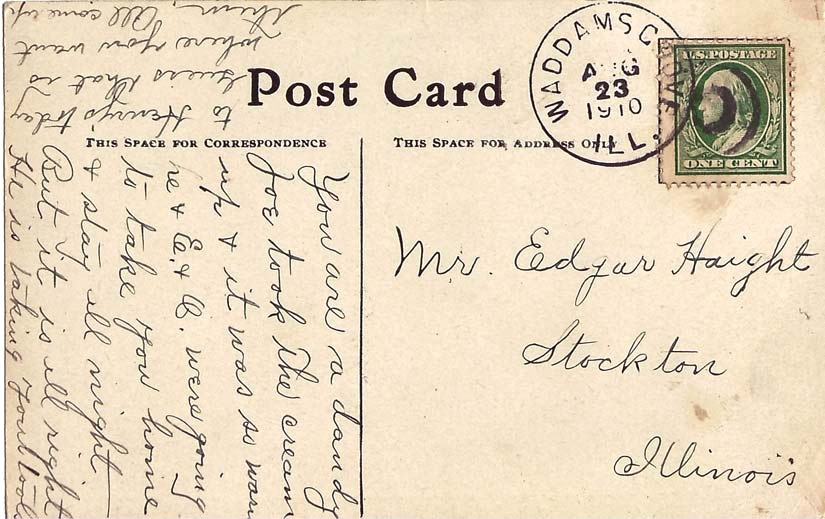 Post Card
THIS SPACE FOR CORRESPONDENCE
THIS SPACE FOR ADDRESS ONLY
WADDAMS GROVE
AUG
23
1910
ILL.
U.S. POSTAGE
ONE CENT
Mr. Edgar Haight
Stockton
Illinois
You are a dandy
Joe took the cream
up & it was so warm
he & E. & A. were going
to take you home
& stay all night
But it is all right
He is taking your tools
to Henry's today
Guess that is
where you want
them. All come up